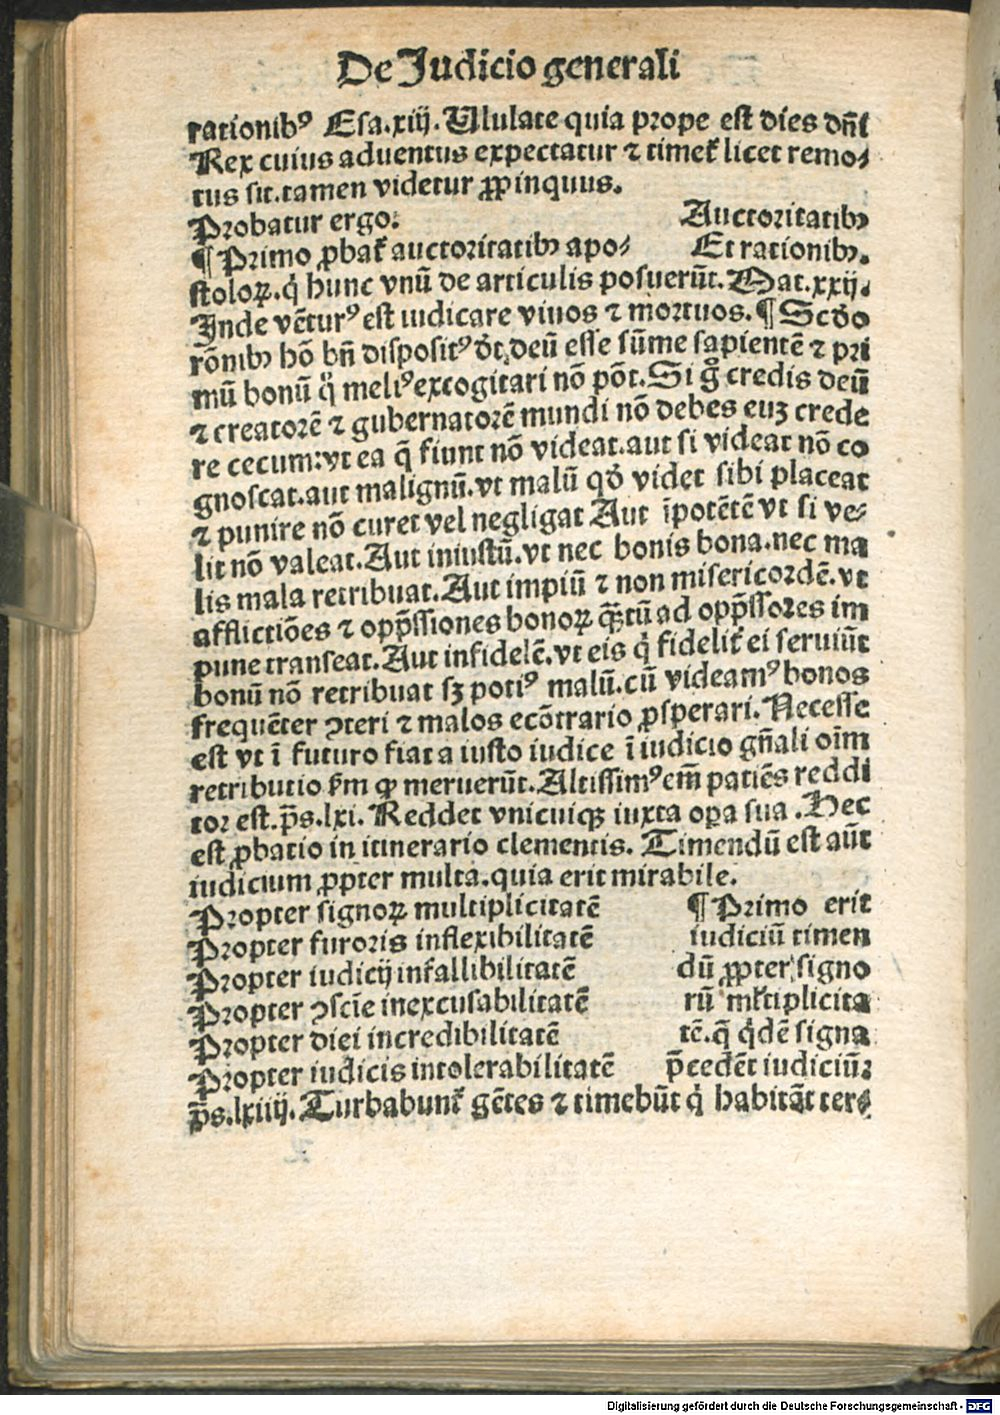 De Judicio generali
rationibꝰ Esa.xiij. Ululate quia prope est dies dn̄i
Rex cuius aduentus expectatur ⁊ timet᷑ licet remo⸗
tus sit.tamen videtur ꝓpinquus.
Probatur ergo: Auctoritatibꝫ
¶ Primo ꝓbat᷑ auctoritatibꝫ apo⸗ Et rationibꝫ.
stoloꝝ.q̇ hunc vnū de articulis posuerūt. Mat.xxij.
Inde vētur᷒ est iudicare viuos ⁊ mortuos. ¶ Scd̓o
rōnibꝫ hō bn̄ disposit᷒ d̓t deū esse sūme sapientē ⁊ pri
mū bonū q̊ meli᷒ excogitari nō pōt. Si g̊ credis deū
⁊ creatorē ⁊ gubernatorē mundi nō debes euꝫ crede
re cecum:vt ea q̄ fiunt nō videat.aut si videat nō co
gnoscat.aut malignū.vt malū qd̓ videt sibi placeat
⁊ punire nō curet vel negligat Aut īpotētē vt si ve⸗
lit nō valeat. Aut iniustū.vt nec bonis bona.nec ma
lis mala retribuat. Aut impiū ⁊ non misericordē.vt
afflictiōes ⁊ opp̄ssiones bonoꝝ q̄ꝫtū ad opp̄ssores im
pune transeat. Aut infidelē.vt eis q̇ fidelit᷑ ei seruiūt
bonū nō retribuat sꝫ poti᷒ malū.cū videam᷒ bonos
frequēter ↄteri ⁊ malos ecōtrario ꝓsperari. Necesse
est vt ī futuro fiat a iusto iudice ī iudicio gn̄ali oīm
retributio ẜm ꝙ meruerūt. Altissim᷒ em̄ patiēs reddi
tor est.ps̄.lxi. Reddet vnicuiqꝫ iuxta oꝑa sua. Hec
est ꝓbatio in itinerario clementis. Timendū est aūt
iudicium ꝓpter multa.quia erit mirabile.
Propter signoꝝ multiplicitatē ¶ Primo erit
Propter furoris inflexibilitatē iudiciū timen
Propter iudicij inf᷑allibilitatē dū ꝓpter signo
Propter ↄscīe inexcusabilitatē rū ml᷑tiplicita
Propter diei incredibilitatē tē.q̄ q̇dē signa
Propter iudicis intolerabilitatē p̄cedēt iudiciū:
ps̄.lxiiij. Turbabunt᷑ gētes ⁊ timebūt q̇ habitāt ter⸗
Digitalisierung gefördert durch die Deutsche Forschungsgemeinschaft - DFG